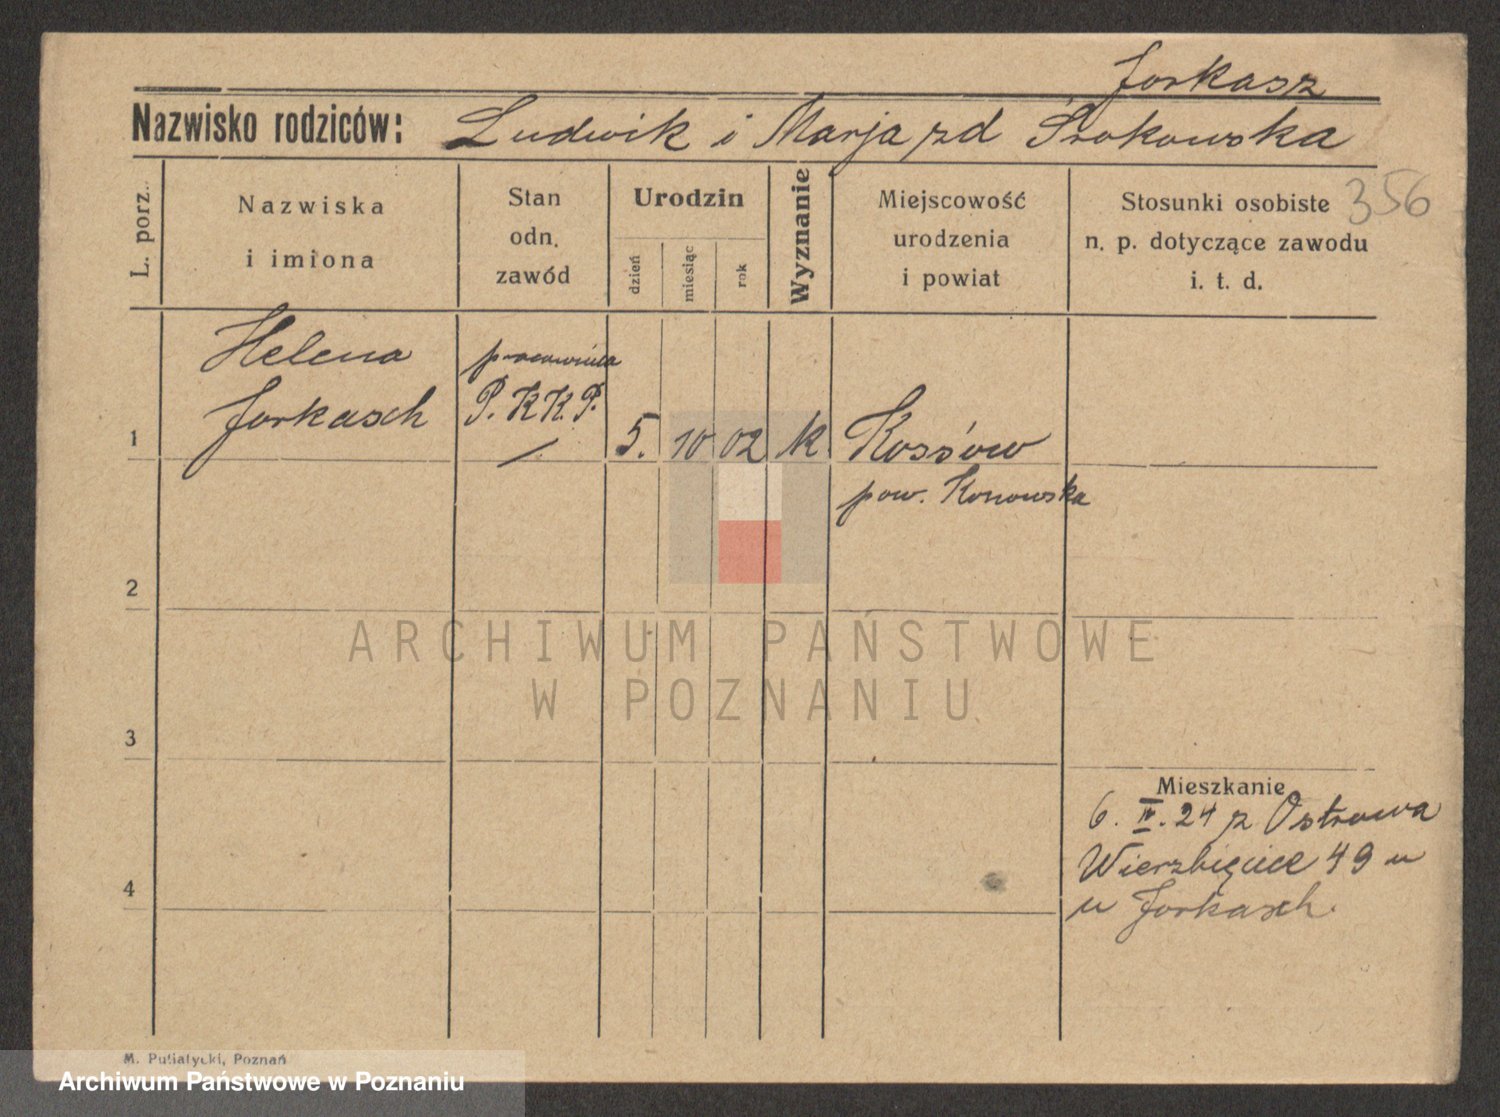 Jorkasz
Nazwisko rodziców: Ludwik i Marja zd Srokowska
L. porz.
Nazwiska
i imiona
Stan
odn.
zawód
Urodzin
dzień
miesiąc
rok
Wyznanie
Miejscowość
urodzenia
i powiat
Stosunki osobiste
n. p. dotyczące zawodu
i. t. d.
356
Helena
Jorkasch
pracownica
P. K. K. P.
1 5. 10 02 k. Kossów
pow. Konowska
2
3
4
ARCHIWUM PAŃSTWOWE
W POZNANIU
Mieszkanie
6. IV. 24 z Ostrowa
Wierzbięcice 49 u
u Jorkasch.
M. Putiatycki, Poznań
Archiwum Państwowe w Poznaniu